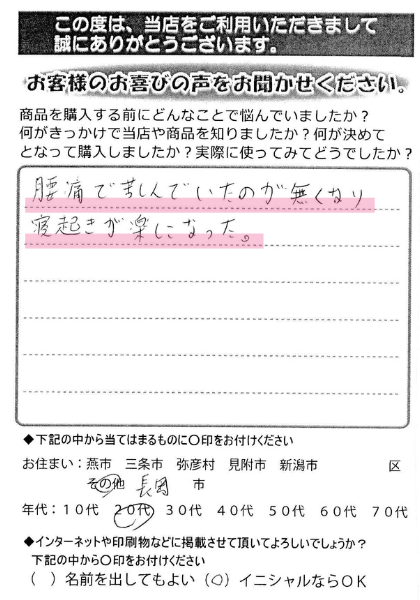 この度は、当店をご利用いただきまして
誠にありがとうございます。
お客様のお喜びの声をお聞かせください。
商品を購入する前にどんなことで悩んでいましたか？
何がきっかけで当店や商品を知りましたか？何が決めて
となって購入しましたか？実際に使ってみてどうでしたか？
腰痛で苦しんでいたのが無くなり
寝起きが楽になった。
◆下記の中から当てはまるものに〇印をお付けください
お住まい：燕市 三条市 弥彦村 見附市 新潟市 区
その他 長岡 市
年代：10代 20代 30代 40代 50代 60代 70代
◆インターネットや印刷物などに掲載させて頂いてよろしいでしょうか？
下記の中から〇印をお付けください
（ ）名前を出してもよい（〇）イニシャルならOK